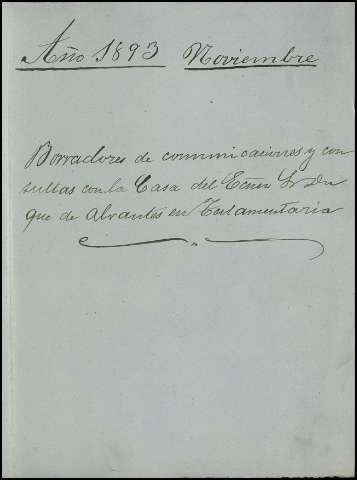 Año 1893 Noviembre
Borradores de communicaciones y con
sultas con la Casa del Ecmo Sr Du
que de Abrantes en Testamentaria